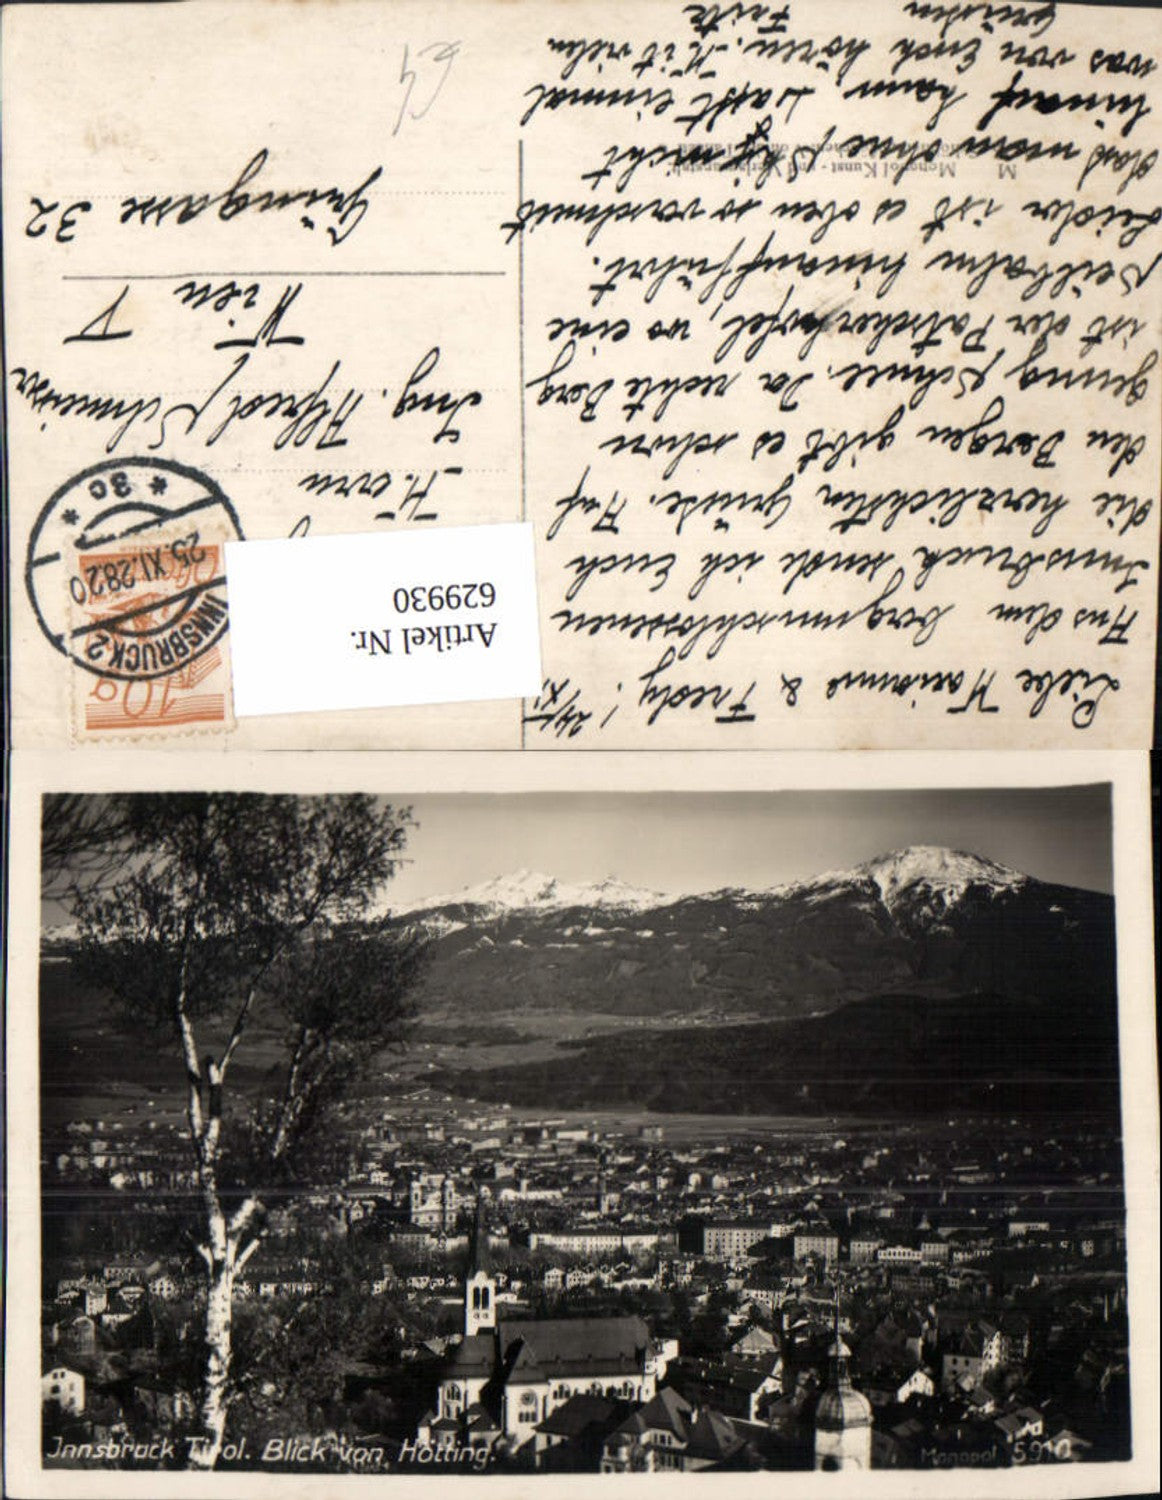 Liebe Marianne & Fredy! 24/XI
Aus dem bergumschlossenen
Innsbruck sende ich Euch
die herzlichsten Grüsse. Auf
den Bergen gibt es schon
genug Schnee. Der nächste Berg
ist der Patscherkofel, wo eine
Seilbahn hinaufführt.
Leider ist es oben so verschneit
dass man ohne Ski nicht
hinauf kann. Lasst einmal
was von Euch hören. Mit vielen
Grüssen Fritz
M Monopol Kunst- und Verlagsanstalt
INNSBRUCK 2
25.XI.28 20
* 3c *
10g
Artikel Nr.
629930
Herrn
Ing. Alfred
Wien V
Grüngasse 32
£4
Innsbruck Tirol. Blick von Hötting.
Monopol 5910